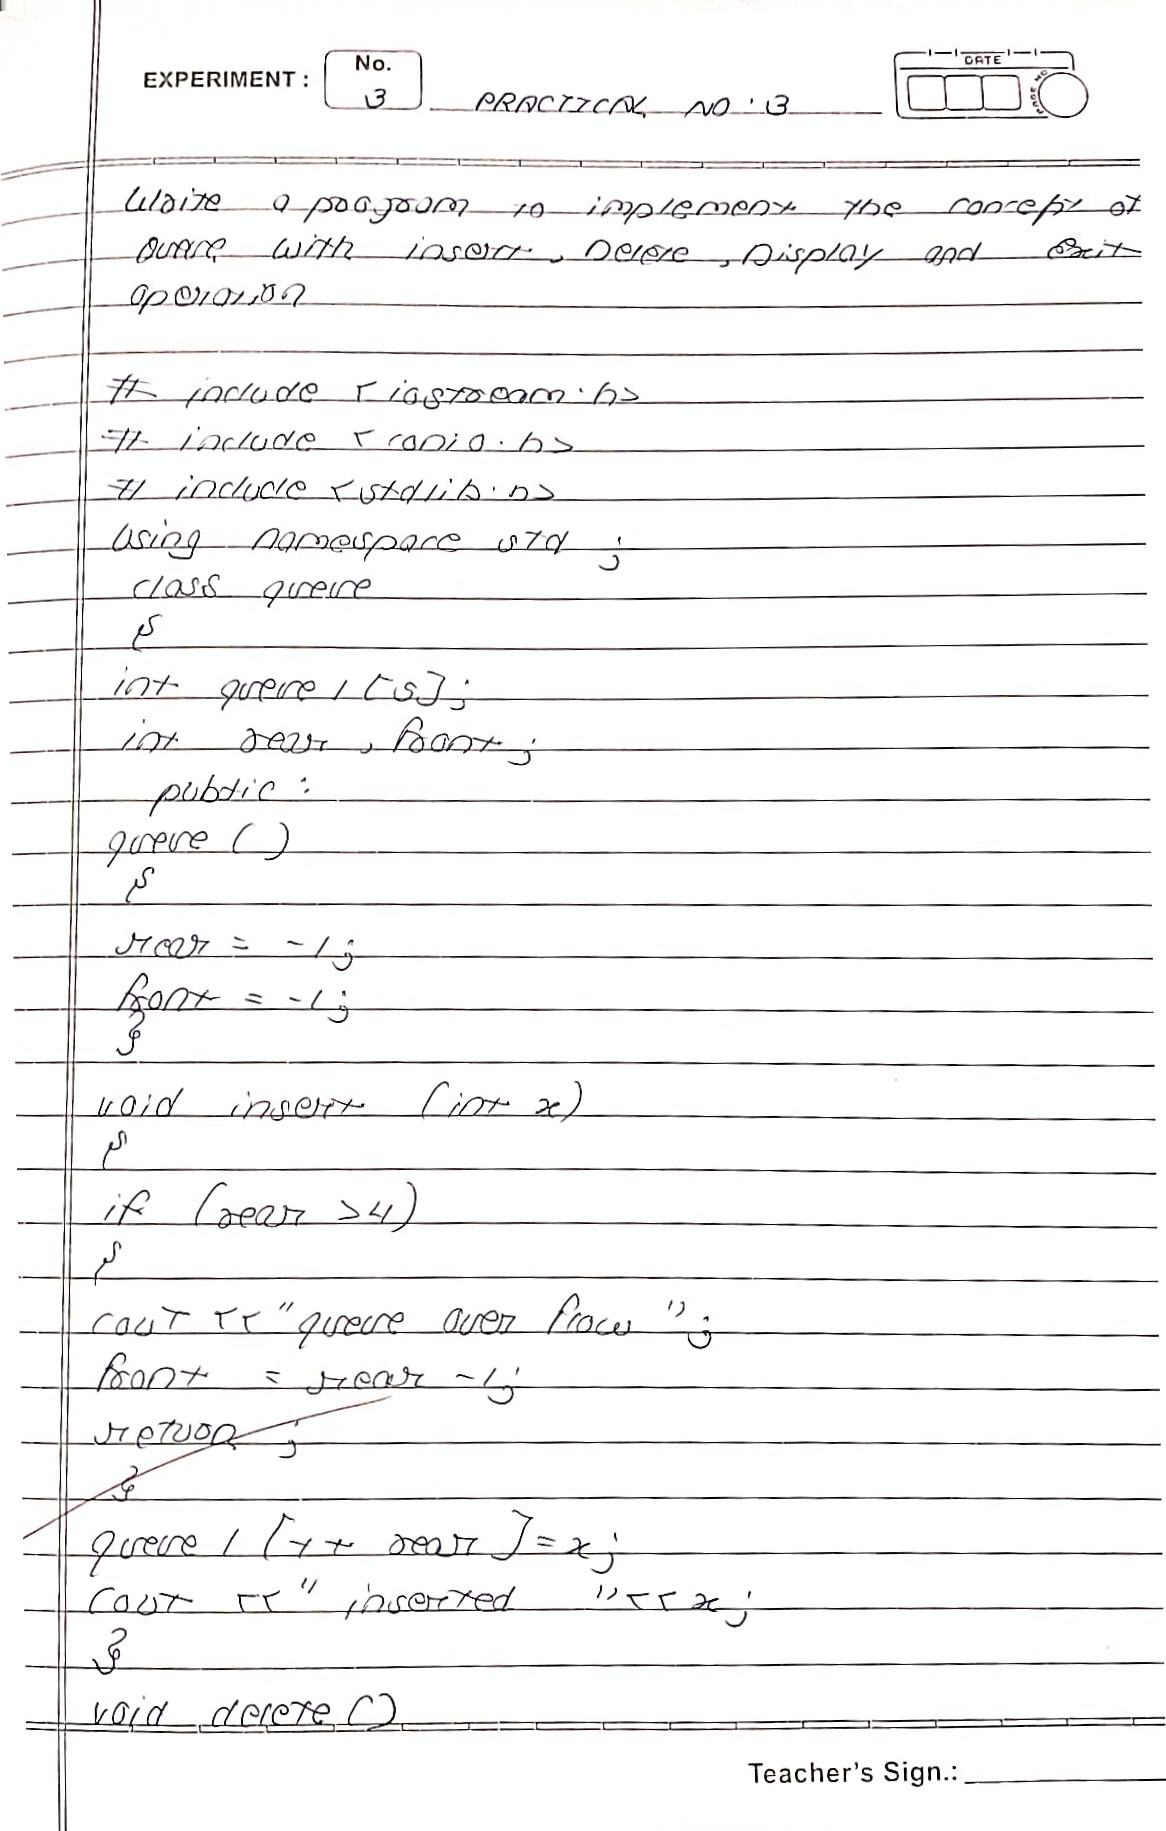 EXPERIMENT :
No.
3
PRACTICAL NO : 3
DATE
PAGE NO
Write a program to implement the concept of
queue with insert, Delete, Display and Exit
operation
# include <iostream.h>
# include <conio.h>
# include <stdlib.h>
using namespace std ;
class queue
{
int queue 1 [5];
int rear, front;
public :
queue ( )
{
rear = -1;
front = -1;
}
void insert (int x)
{
if (rear >4)
{
cout << "queue over flow ";
front = rear -1;
return ;
}
queue 1 [++ rear ] = x;
cout << " inserted " << x;
}
void delete ()
Teacher's Sign.: